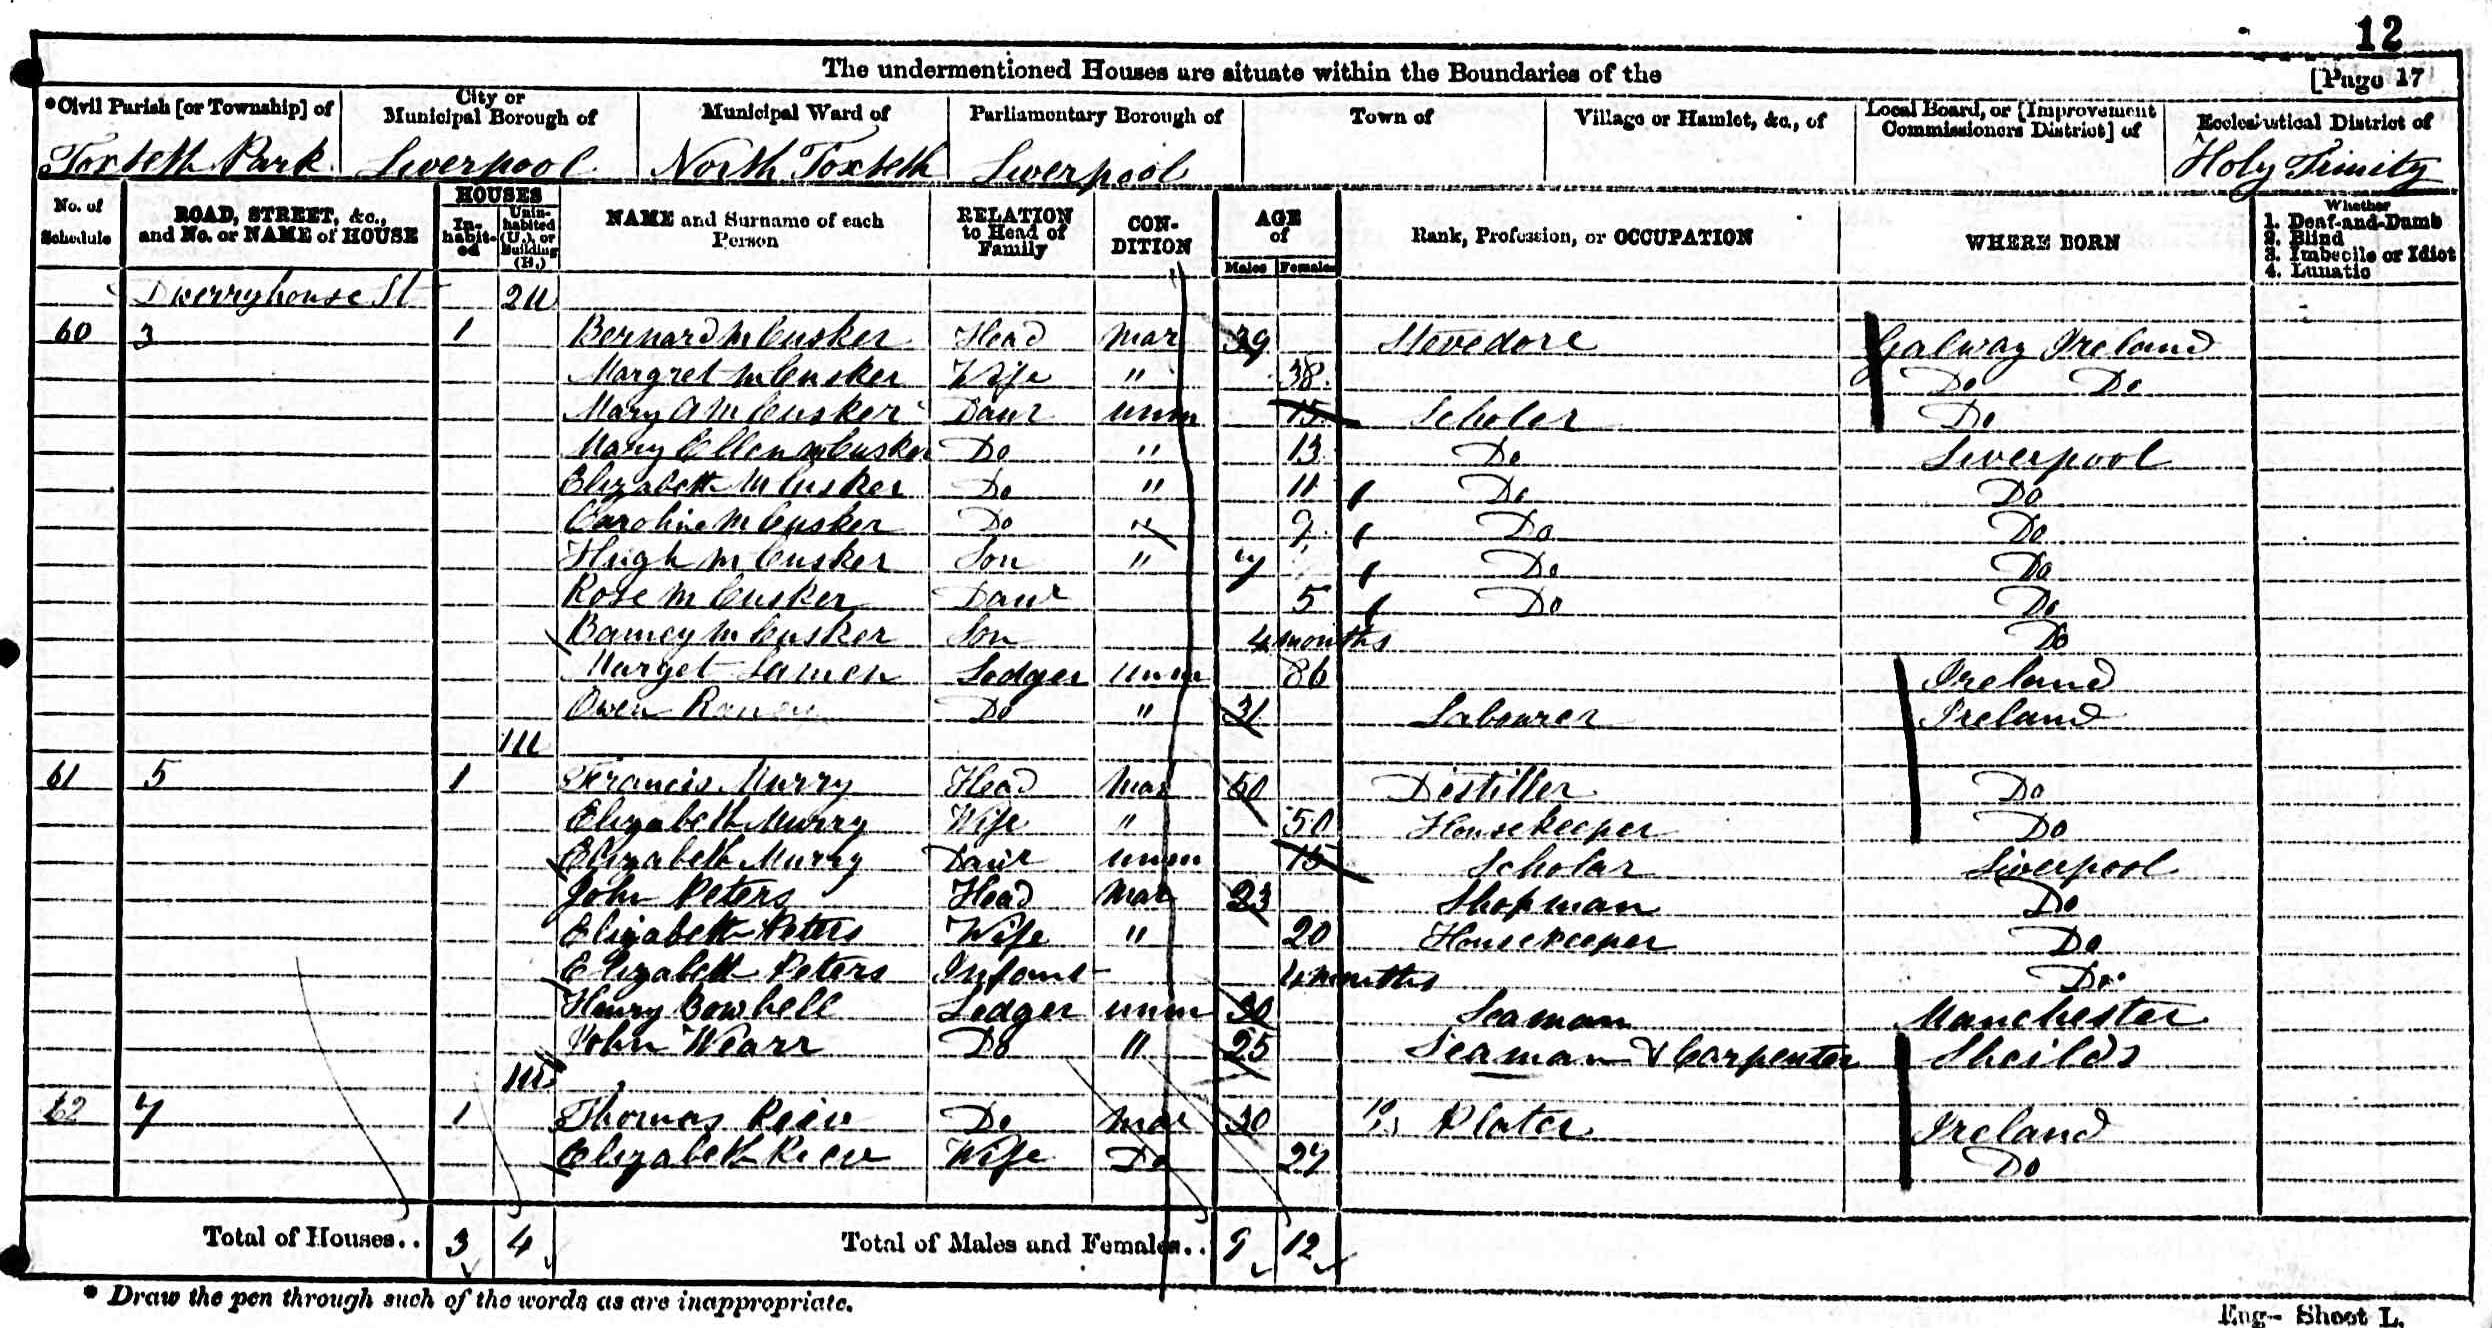 12
The undermentioned Houses are situate within the Boundaries of the [Page 17
*Civil Parish [or Township] of City or Municipal Borough of Municipal Ward of Parliamentary Borough of Town of Village or Hamlet, &c., of Local Board, or [Improvement Commissioners District] of Ecclesiastical District of
Toxteth Park Liverpool North Toxteth Liverpool Holy Trinity
No. of Schedule ROAD, STREET, &c., and No. or NAME of HOUSE HOUSES In-habit-ed Unin-habited (U.), or Building (B.) NAME and Surname of each Person RELATION to Head of Family CON-DITION AGE of Males Females Rank, Profession, or OCCUPATION WHERE BORN Whether 1. Deaf-and-Dumb 2. Blind 3. Imbecile or Idiot 4. Lunatic
Dwerryhouse St 2U
60 3 1 Bernard McCusker Head Mar 39 Stevedore Galway Ireland
Margret McCusker Wife " 38 Do Do
Mary A McCusker Daur unm 15 Scholer Do
Mary Ellen McCusker Do " 13 Do Liverpool
Elizabeth McCusker Do " 11 Do Do
Caroline McCusker Do " 9 Do Do
Hugh McCusker Son " 7 Do Do
Rose McCusker Daur 5 Do Do
Barney McCusker Son 4 months Do
Marget Lodger unm 86 Ireland
Owen Do " 31 Labourer Ireland
1U
61 5 1 Francis Murry Head Mar 60 Distiller Do
Elizabeth Murry Wife " 50 Housekeeper Do
Elizabeth Murry Daur unm 15 Scholar Liverpool
John Peters Head Mar 23 Shopman Do
Elizabeth Peters Wife " 20 Housekeeper Do
Elizabeth Peters Infant 4 months Do
Henry Bowbell Lodger unm 30 Seaman Manchester
John Wearr Do " 25 Seaman & Carpenter Sheilds
1U
62 7 1 Thomas Do Mar 30 Plater Ireland
Elizabeth Wife Do 27 Do
Total of Houses.. 3 4 Total of Males and Females.. 9 12
* Draw the pen through such of the words as are inappropriate.
Eng- Sheet L.